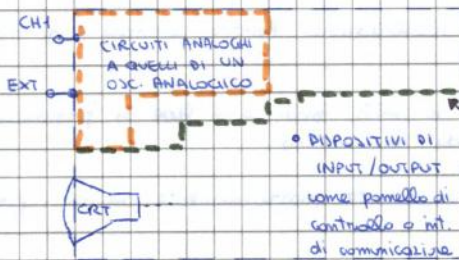 CH1
CIRCUITI ANALOGHI
A QUELLI DI UN
OSC. ANALOGICO
EXT
• DISPOSITIVI DI
INPUT/OUTPUT
come pomello di
controllo o int.
di comunicazione
CRT